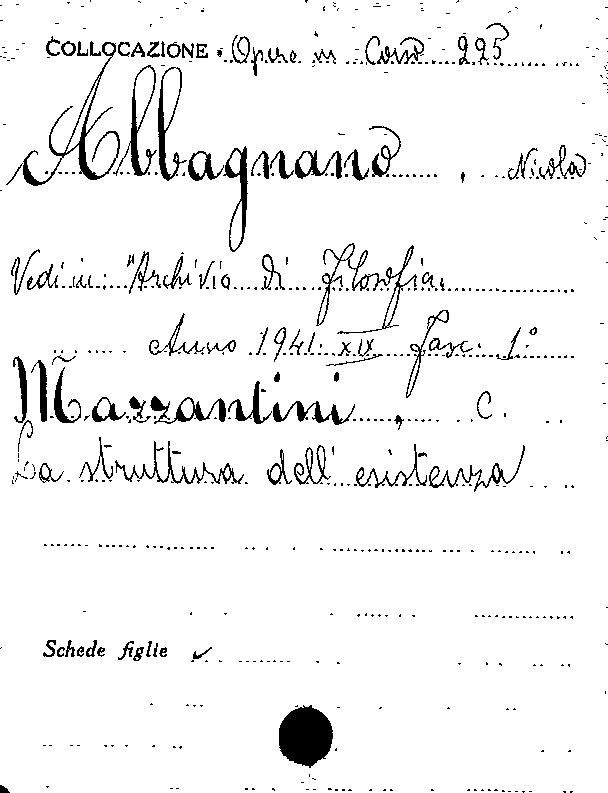 COLLOCAZIONE . Opere in Corso 225
Abbagnano , Nicola
Vedi in: "Archivio di Filosofia.
Anno 1941. XIX Fasc. 1°
Mazzantini , C.
La struttura dell' esistenza
Schede figlie ✓